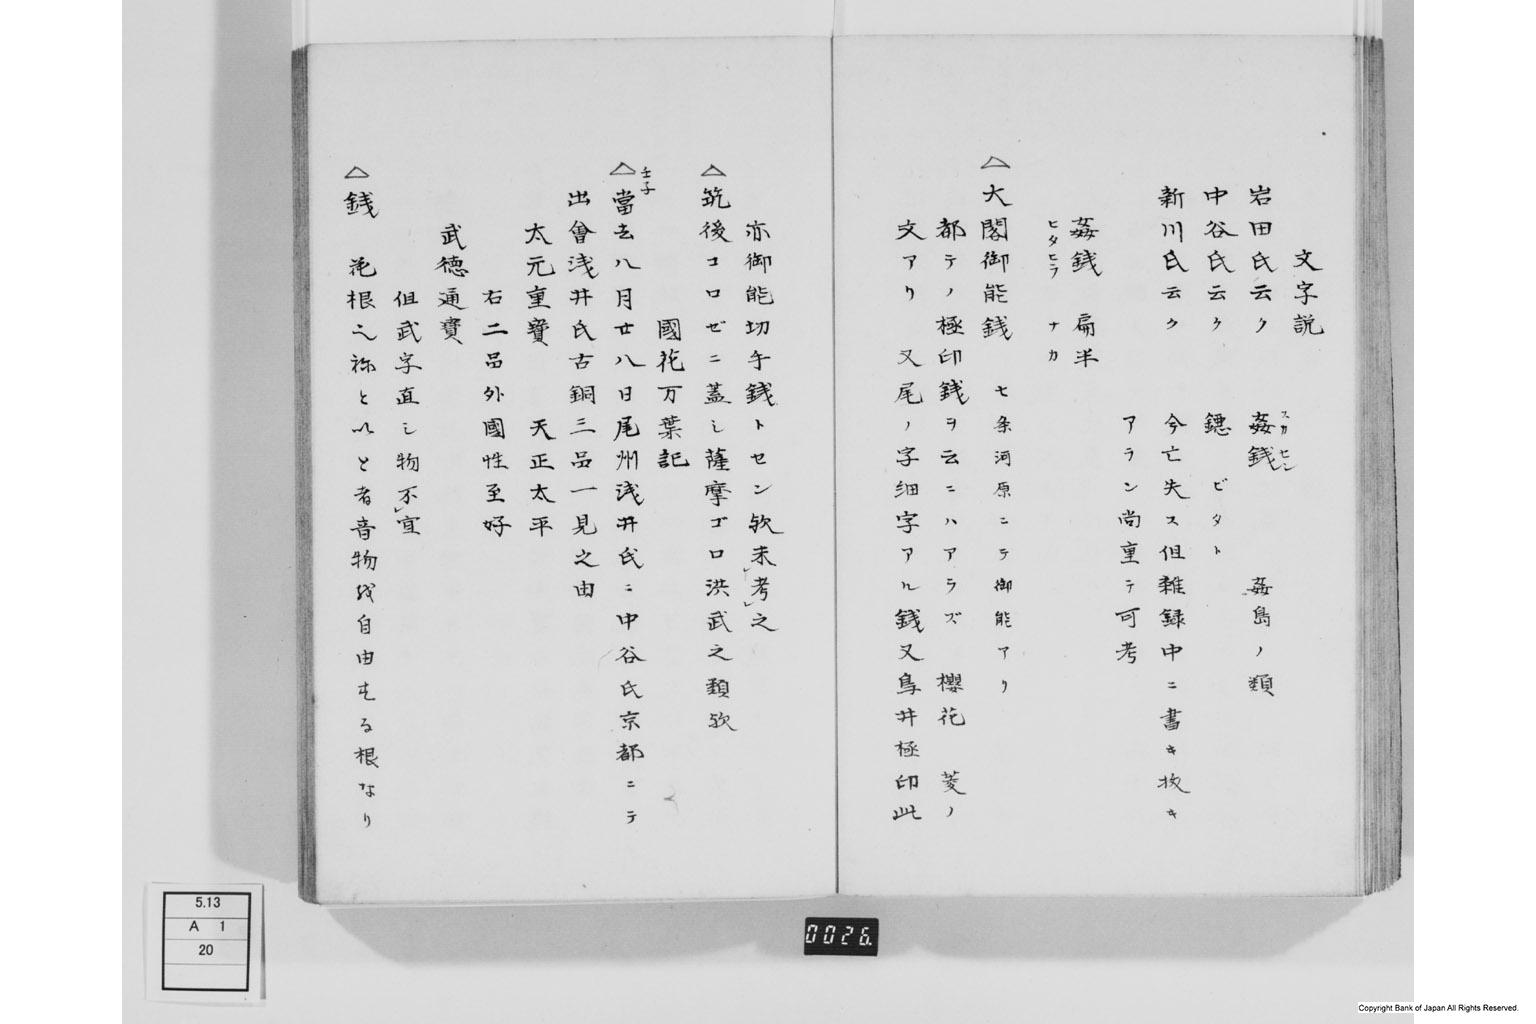 文字説
岩田氏云ク 姦錢 姦島ノ類
スカセン
中谷氏云ク 鐚 ビタト
新川氏云ク 今亡失ス但雜録中ニ書キ拔キ
アラン尚重テ可考
姦錢 扁半
ヒタヒラ ナカ
△大閤御能錢 七条河原ニテ御能アリ
都テノ極印錢ヲ云ニハアラズ 櫻花 菱ノ
文アリ 又尾ノ字細字アル錢又鳥井極印此
亦御能切手錢トセン欤未考之
△筑後コロゼニ蓋シ薩摩ゴロ洪武之類欤
國花万葉記
壬子
△當去八月廿八日尾州浅井氏ニ中谷氏京都ニテ
出會浅井氏古銅三品一見之由
太元重寶 天正太平
右二品外國性至好
武徳通寶
但武字直シ物不宜
△錢 根之祢と以と者音物我自由せる根なり
5.13
A 1
20
0026.
Copyright Bank of Japan All Rights Reserved.